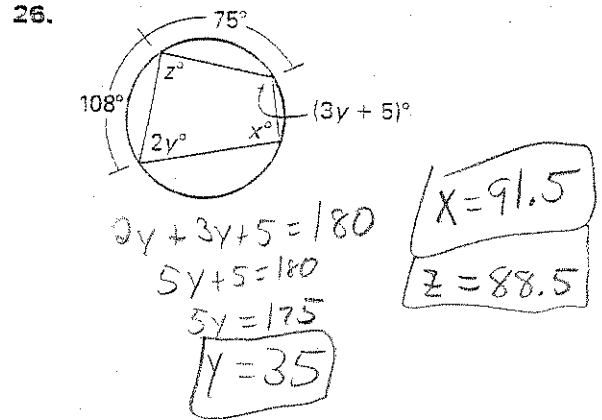 26.
75°
z°
108°
(3y + 5)°
x°
2y°
2y + 3y + 5 = 180
5y + 5 = 180
5y = 175
y = 35
x = 91.5
z = 88.5